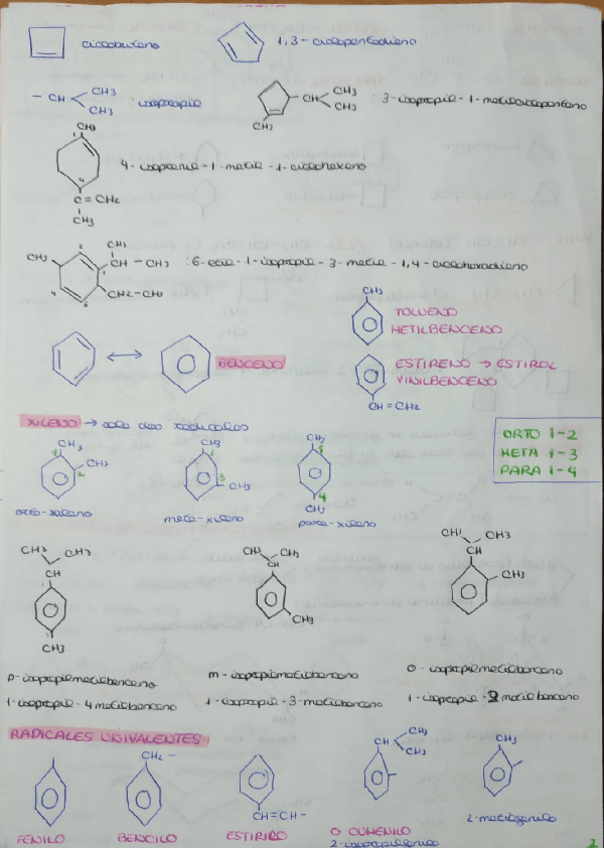 ciclobuteno
1,3-ciclopentadieno
- CH CH3 CH3 : isopropil
CH CH3 CH3 CH3 : 3-isopropil-1-metilciclopenteno
CH3
4-isopropenil-1-metil-1-ciclohexeno
C=CH2
CH3
CH3
CH3 CH - CH3 : 6-etil-1-isopropil-3-metil-1,4-ciclohexadieno
CH2-CH3
CH3
TOLUENO
METILBENCENO
BENCENO
ESTIRENO → ESTIROL
VINILBENCENO
CH=CH2
XILENO → solo dos radicales
ORTO 1-2
META 1-3
PARA 1-4
1 CH3 2 CH3
CH3 1 3 CH3
CH3 1 4 CH3
orto-xileno
meta-xileno
para-xileno
CH3 CH3 CH CH3
CH3 CH3 CH CH3
CH3 CH3 CH CH3
p-isopropilmetilbenceno
m-isopropilmetilbenceno
o-isopropilmetilbenceno
1-isopropil-4metilbenceno
1-isopropil-3-metilbenceno
1-isopropil-2metilbenceno
RADICALES UNIVALENTES
CH2 -
CH=CH-
CH CH3 CH3
CH3
FENILO
BENCILO
ESTIRILO
O CUMENILO
2-isopropilfenilo
2-metilfenilo
2